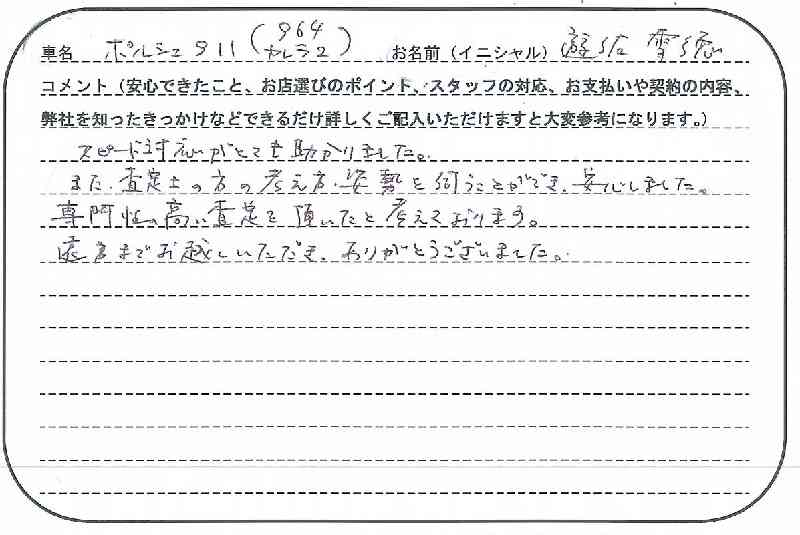 車名 ポルシェ911(964 カレラ2) お名前(イニシャル) 遊佐
コメント(安心できたこと、お店選びのポイント、スタッフの対応、お支払いや契約の内容、
弊社を知ったきっかけなどできるだけ詳しくご記入いただけますと大変参考になります。)
スピード対応がとても助かりました。
また、査定士の方の考え方、姿勢を伺うことができ、安心しました。
専門性の高い査定を頂いたと考えております。
遠方までお越しいただき、ありがとうございました。